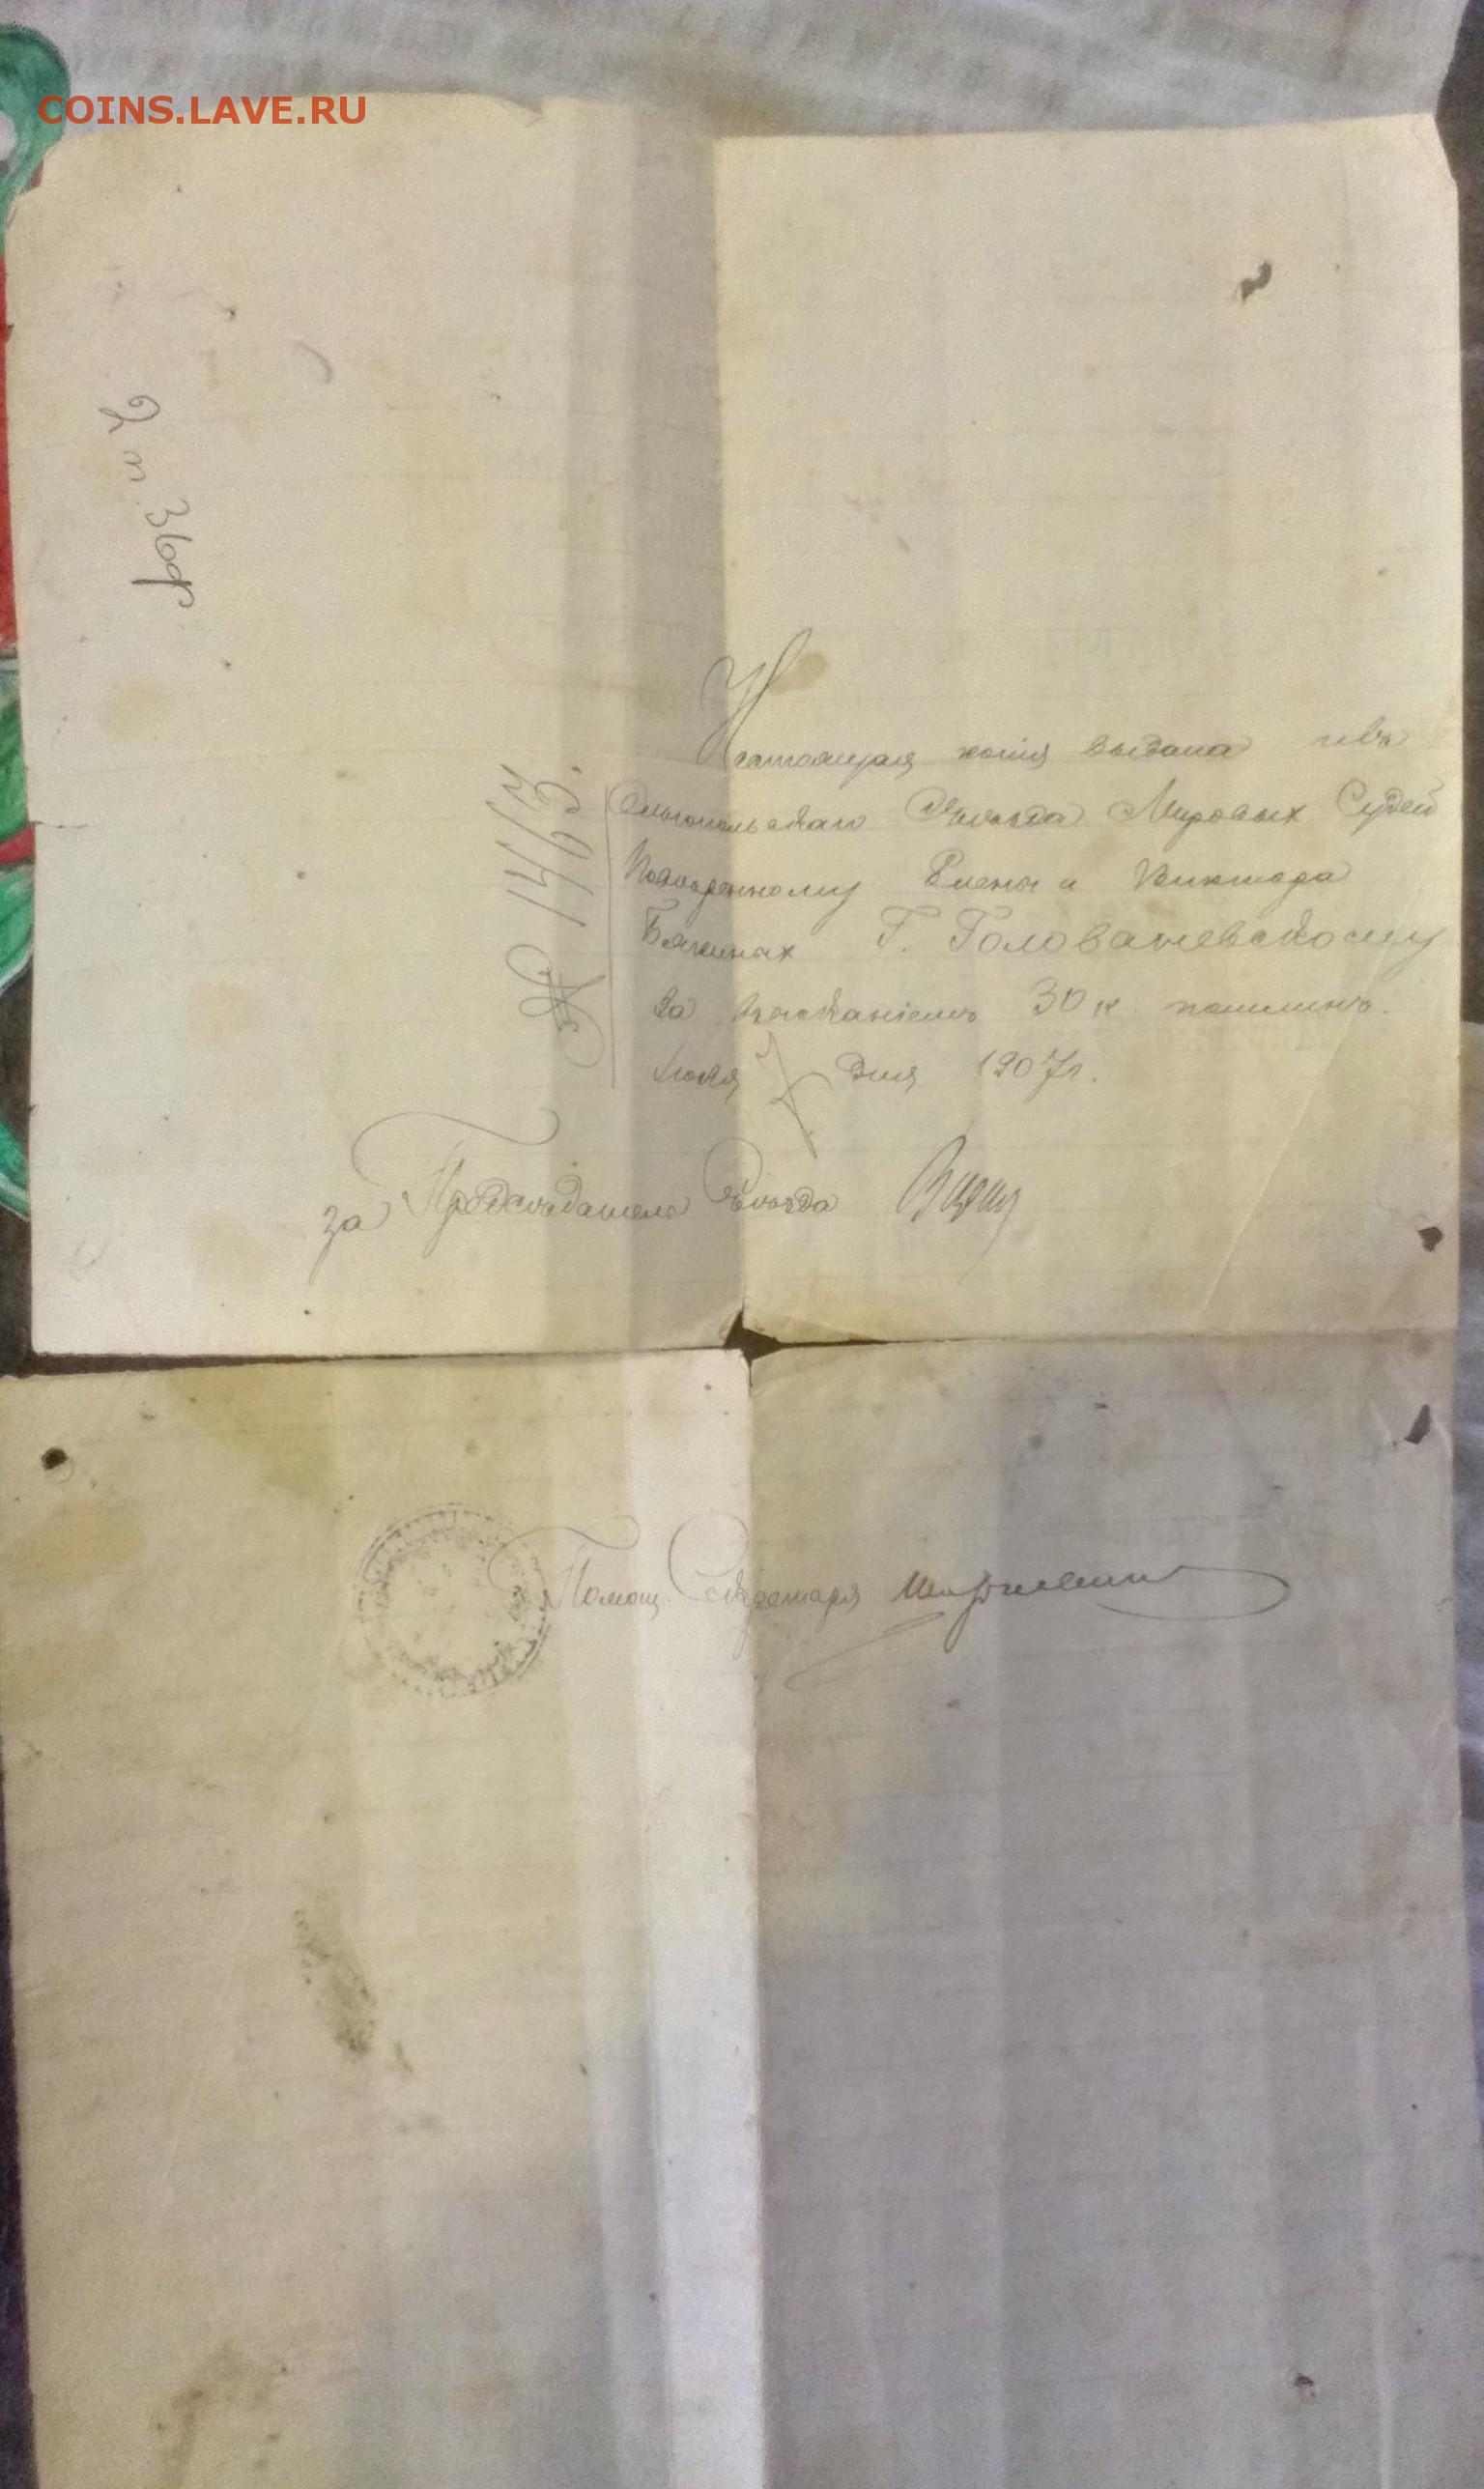 COINS.LAVE.RU
2 п. 36ф
Настоящая копія выдана изъ
Ольгопольскаго Съѣзда Мировыхъ Судей
Повѣренному Елены и Виктора
Г. Голованевскому
за взысканіемъ 30 к. пошлинъ.
Іюля 7 дня 1907 г.
№ 1465.
за Предсѣдателя Съѣзда
Помощ. Секретаря